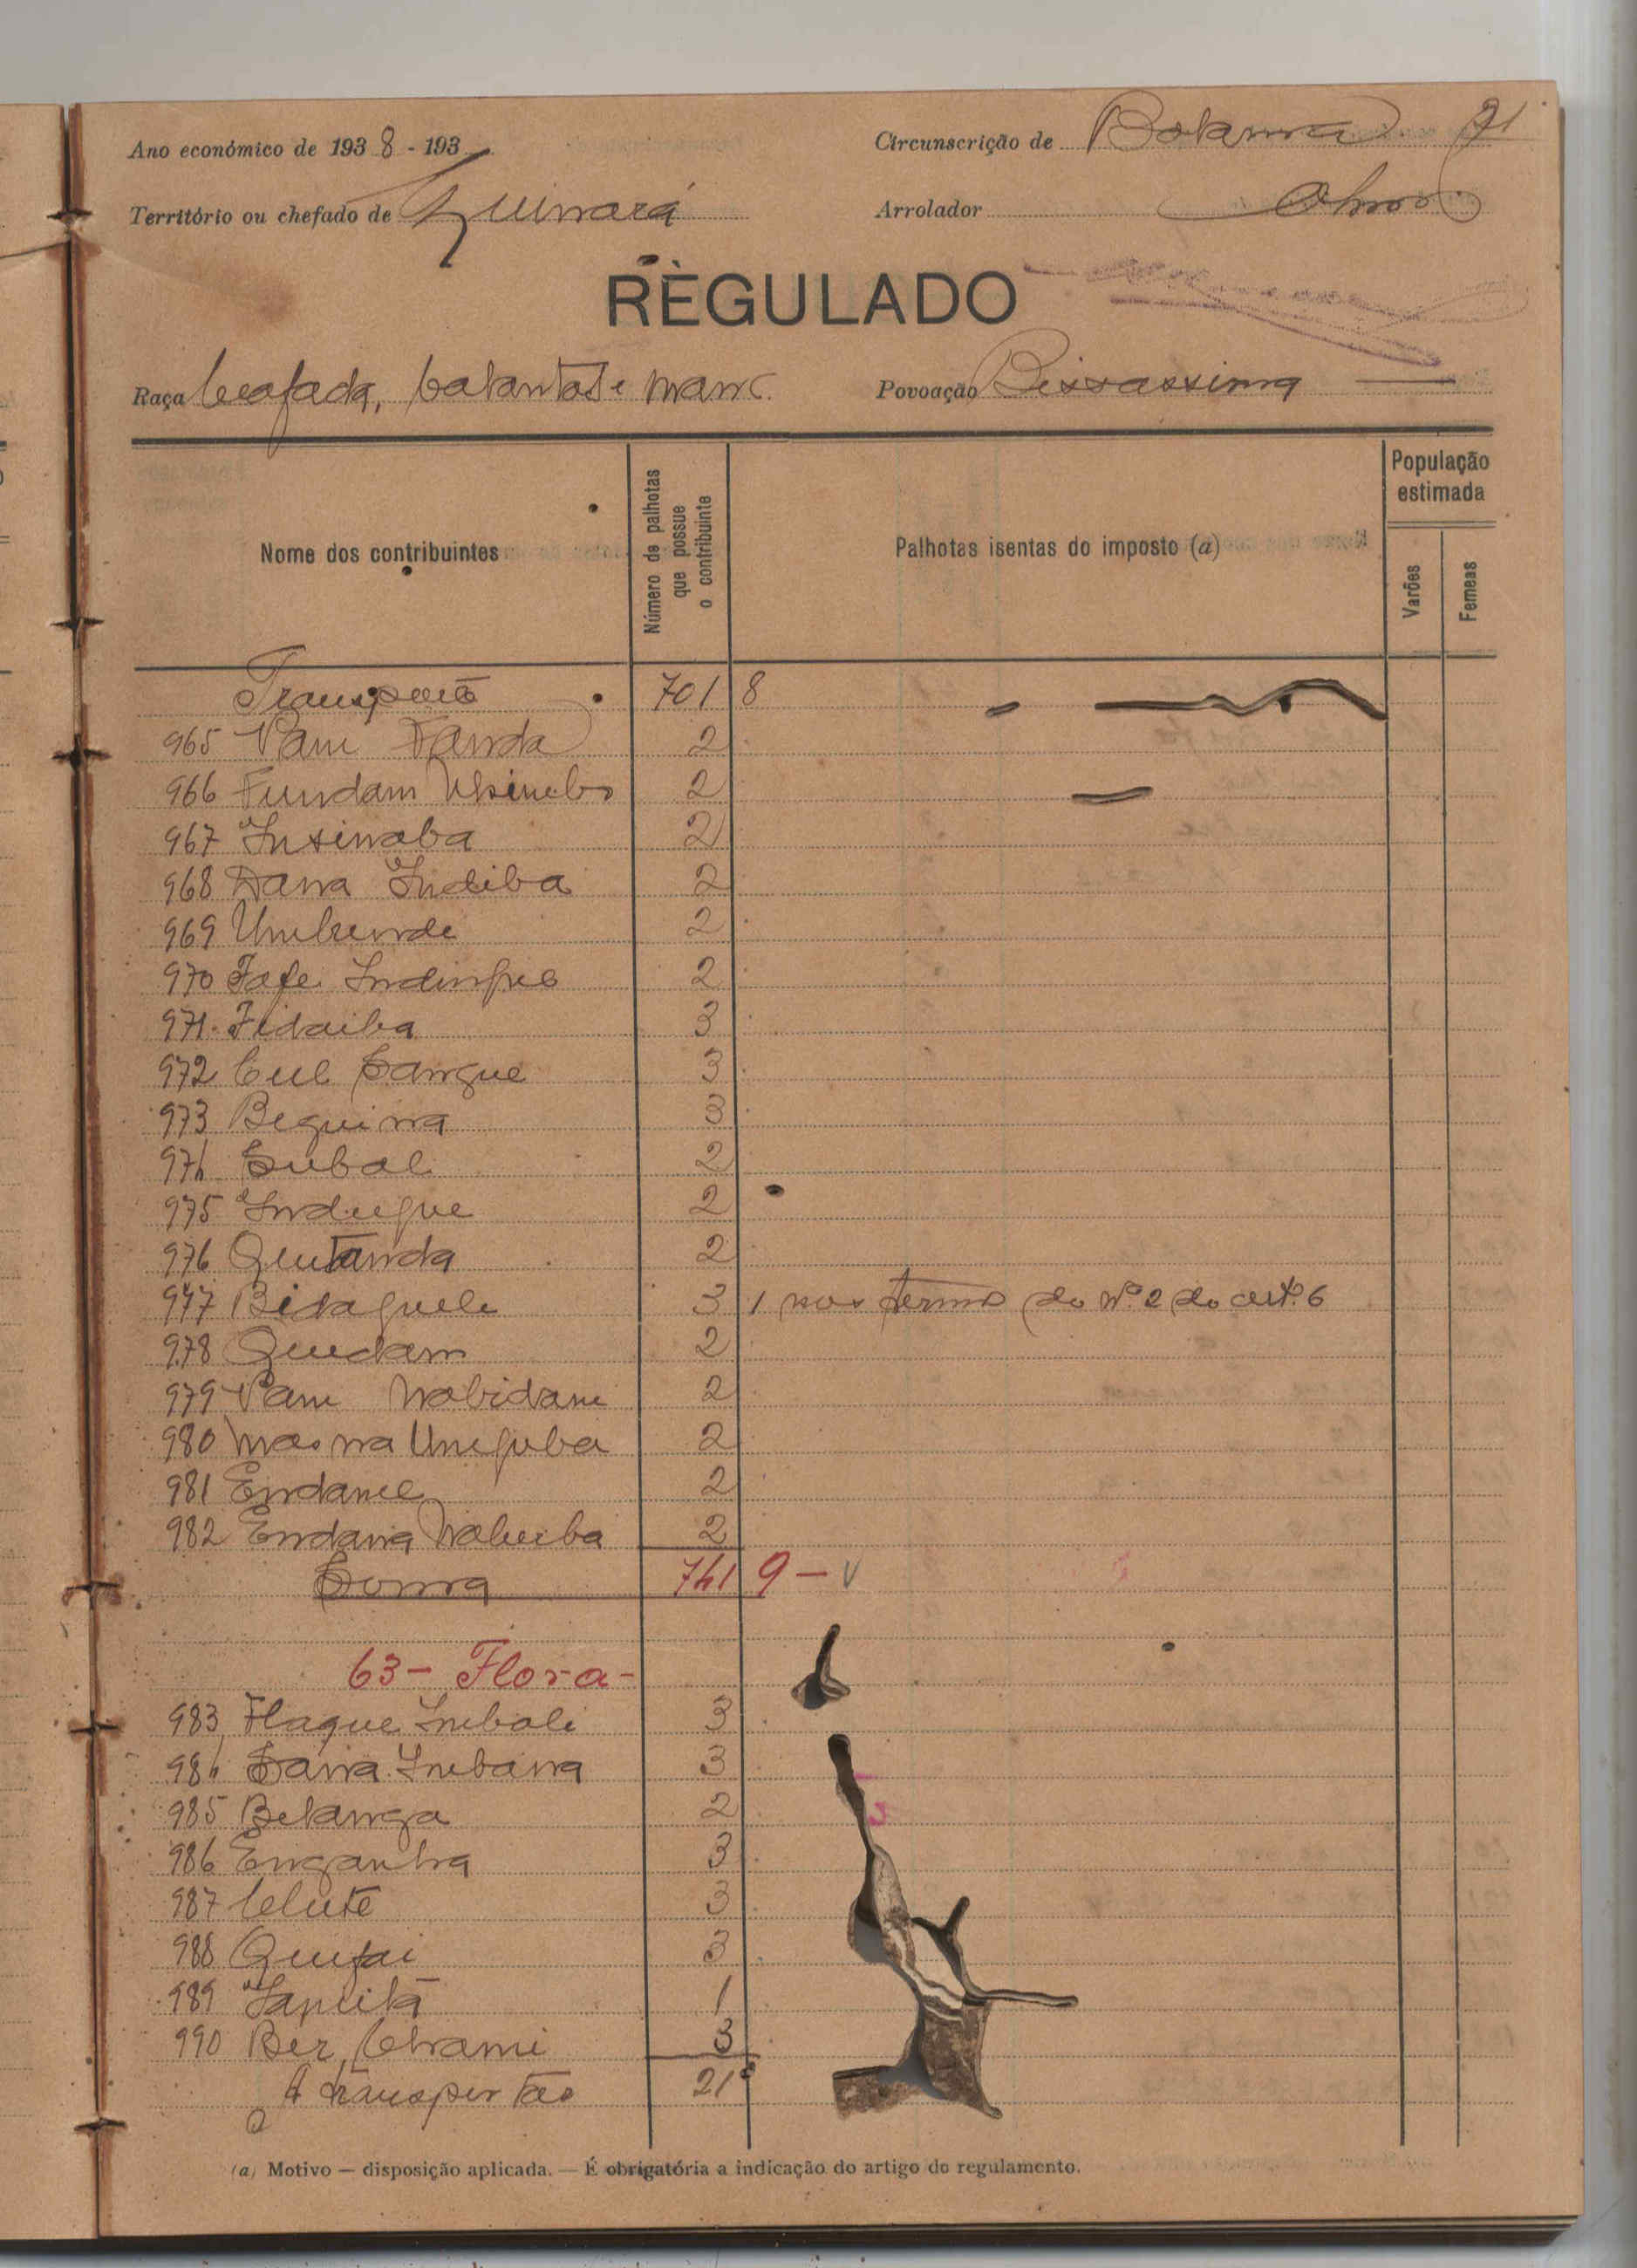 Ano económico de 1938 - 193
Circunscrição de Bolama 71
Território ou chefado de Quinará
Arrolador
REGULADO
Raça beafada, balantas e manc.
Povoação Bissassima
Nome dos contribuintes
Número de palhotas que possue o contribuinte
Palhotas isentas do imposto (a)
População estimada
Varões
Femeas
Transporte 701 8
965 Vam Danda 2
966 Fundam 2
967 Insinaba 2
968 Dana Indiba 2
969 Umbunde 2
970 Fafe 2
971 Fidaiba 3
972 Cul Sangue 3
973 Bequina 3
974 Subal 2
975 Indugue 2
976 Quitanda 2
977 Bidaguele 3 1 nos termos do nº 2 do artº 6
978 Quedam 2
979 Vam Nabidam 2
980 2
981 Endame 2
982 Endana 2
Soma 741 9 -
63 - Flora -
983 Flaque Imbali 3
984 Sana Imbana 3
985 Belanga 2
986 Enganha 3
987 Clute 3
988 3
989 1
990 Ber 3
A transportar 21
(a) Motivo — disposição aplicada. — É obrigatória a indicação do artigo do regulamento.